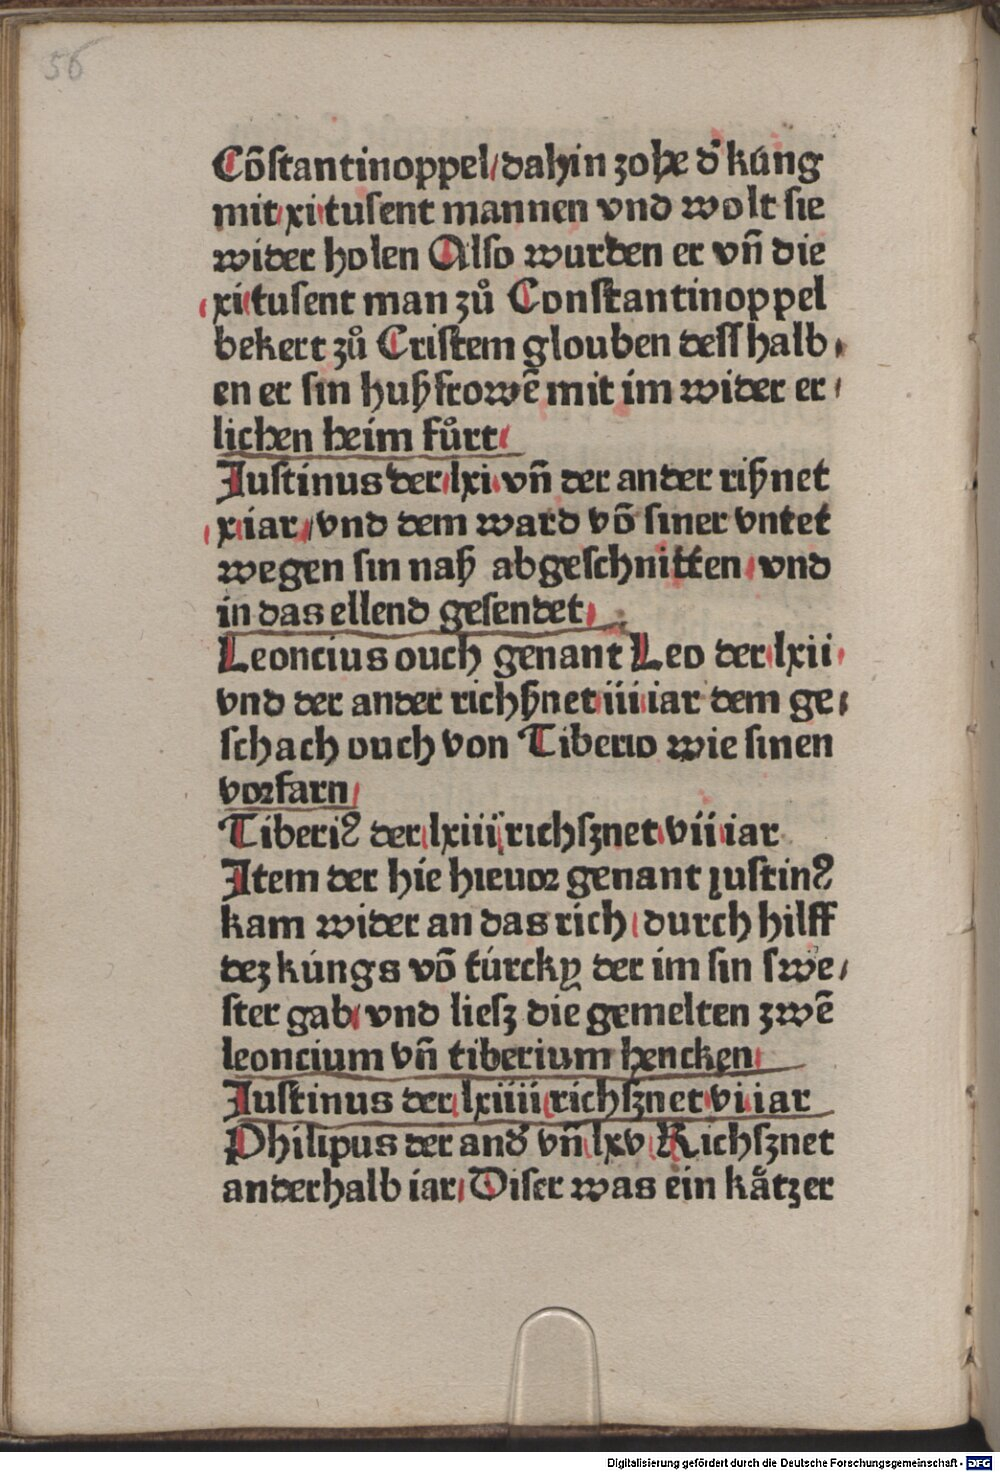 56
Cõſtantinoppel/dahin zohe d̕ kúng
mit xi tuſent mannen vnd wolt ſie
wider holen Alſo wurden er vñ die
xi tuſent man zů Conſtantinoppel
bekert zů Criſtem glouben deſſ halb⸗
en er ſin huſzfrowẽ mit im wider er⸗
lichen heim fůrt
Iuſtinus der lxi vñ der ander riſznet
x iar /vnd dem ward võ ſiner vntet
wegen ſin naſz abgeſchnitten vnd
in das ellend geſendet
Leoncius ouch genant Leo der lxii
vnd der ander richſznet iii iar dem ge⸗
ſchach ouch von Tiberio wie ſinen
vorfarn
Tiberiꝰ der lxiii richſznet vii iar
Item der hie hieuor genant iuſtinꝰ
kam wider an das rich durch hilff
dez kúngs võ túrcky der im ſin ſwe⸗
ſter gab vnd lieſz die gemelten zwẽ
leoncium vñ tiberium hencken
Iuſtinus der lxiiii richſznet vi iar
Philipus der and̕ vñ lxv Richſznet
anderhalb iar Diſer was ein kåtzer
Digitalisierung gefördert durch die Deutsche Forschungsgemeinschaft - DFG